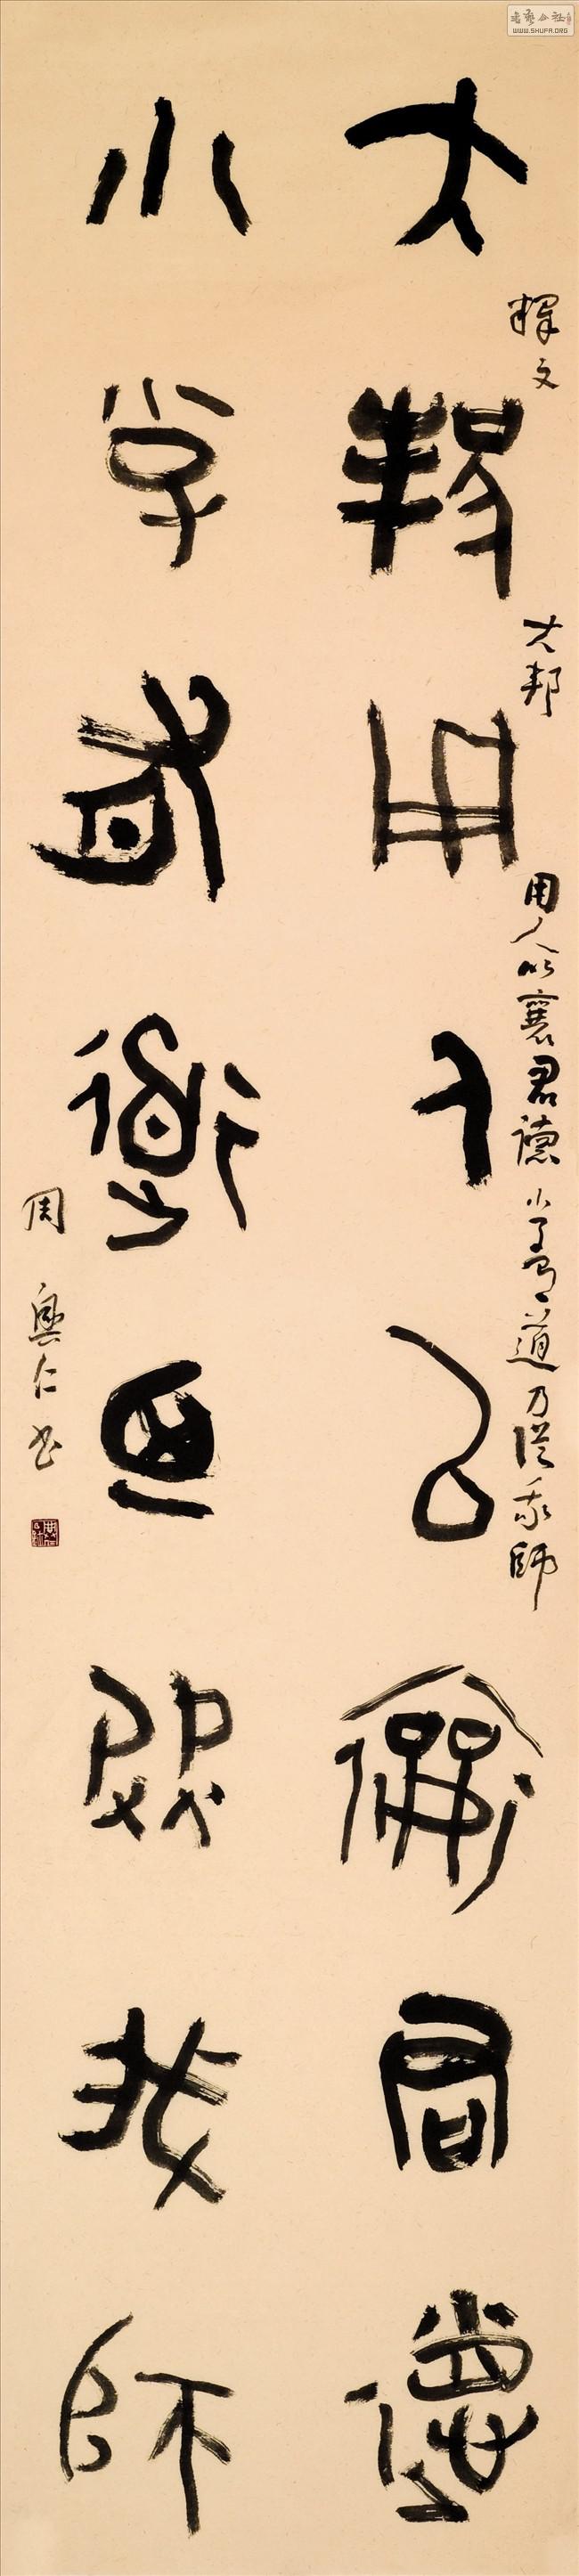 大邦用人以襄君德
小子有道乃從我師
釋文 大邦用人以襄君德小子有道乃從我師
周與仁書
書藝公社
WWW.SHUFA.ORG